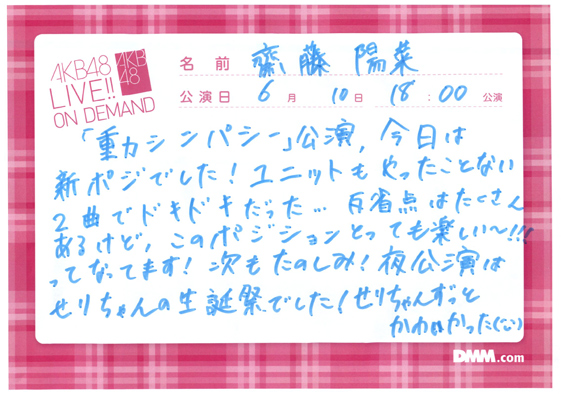 AKB48
LIVE!!
ON DEMAND
AKB
48
名前 齋藤 陽菜
公演日 6月 10日 18:00 公演
「重力シンパシー」公演, 今日は
新ポジでした! ユニットもやったことない
2曲でドキドキだった… 反省点はたくさん
あるけど, このポジションとっても楽しい〜!!!
ってなってます! 次もたのしみ! 夜公演は
せりちゃんの生誕祭でした! せりちゃんずっと
かわいかった
DMM.com